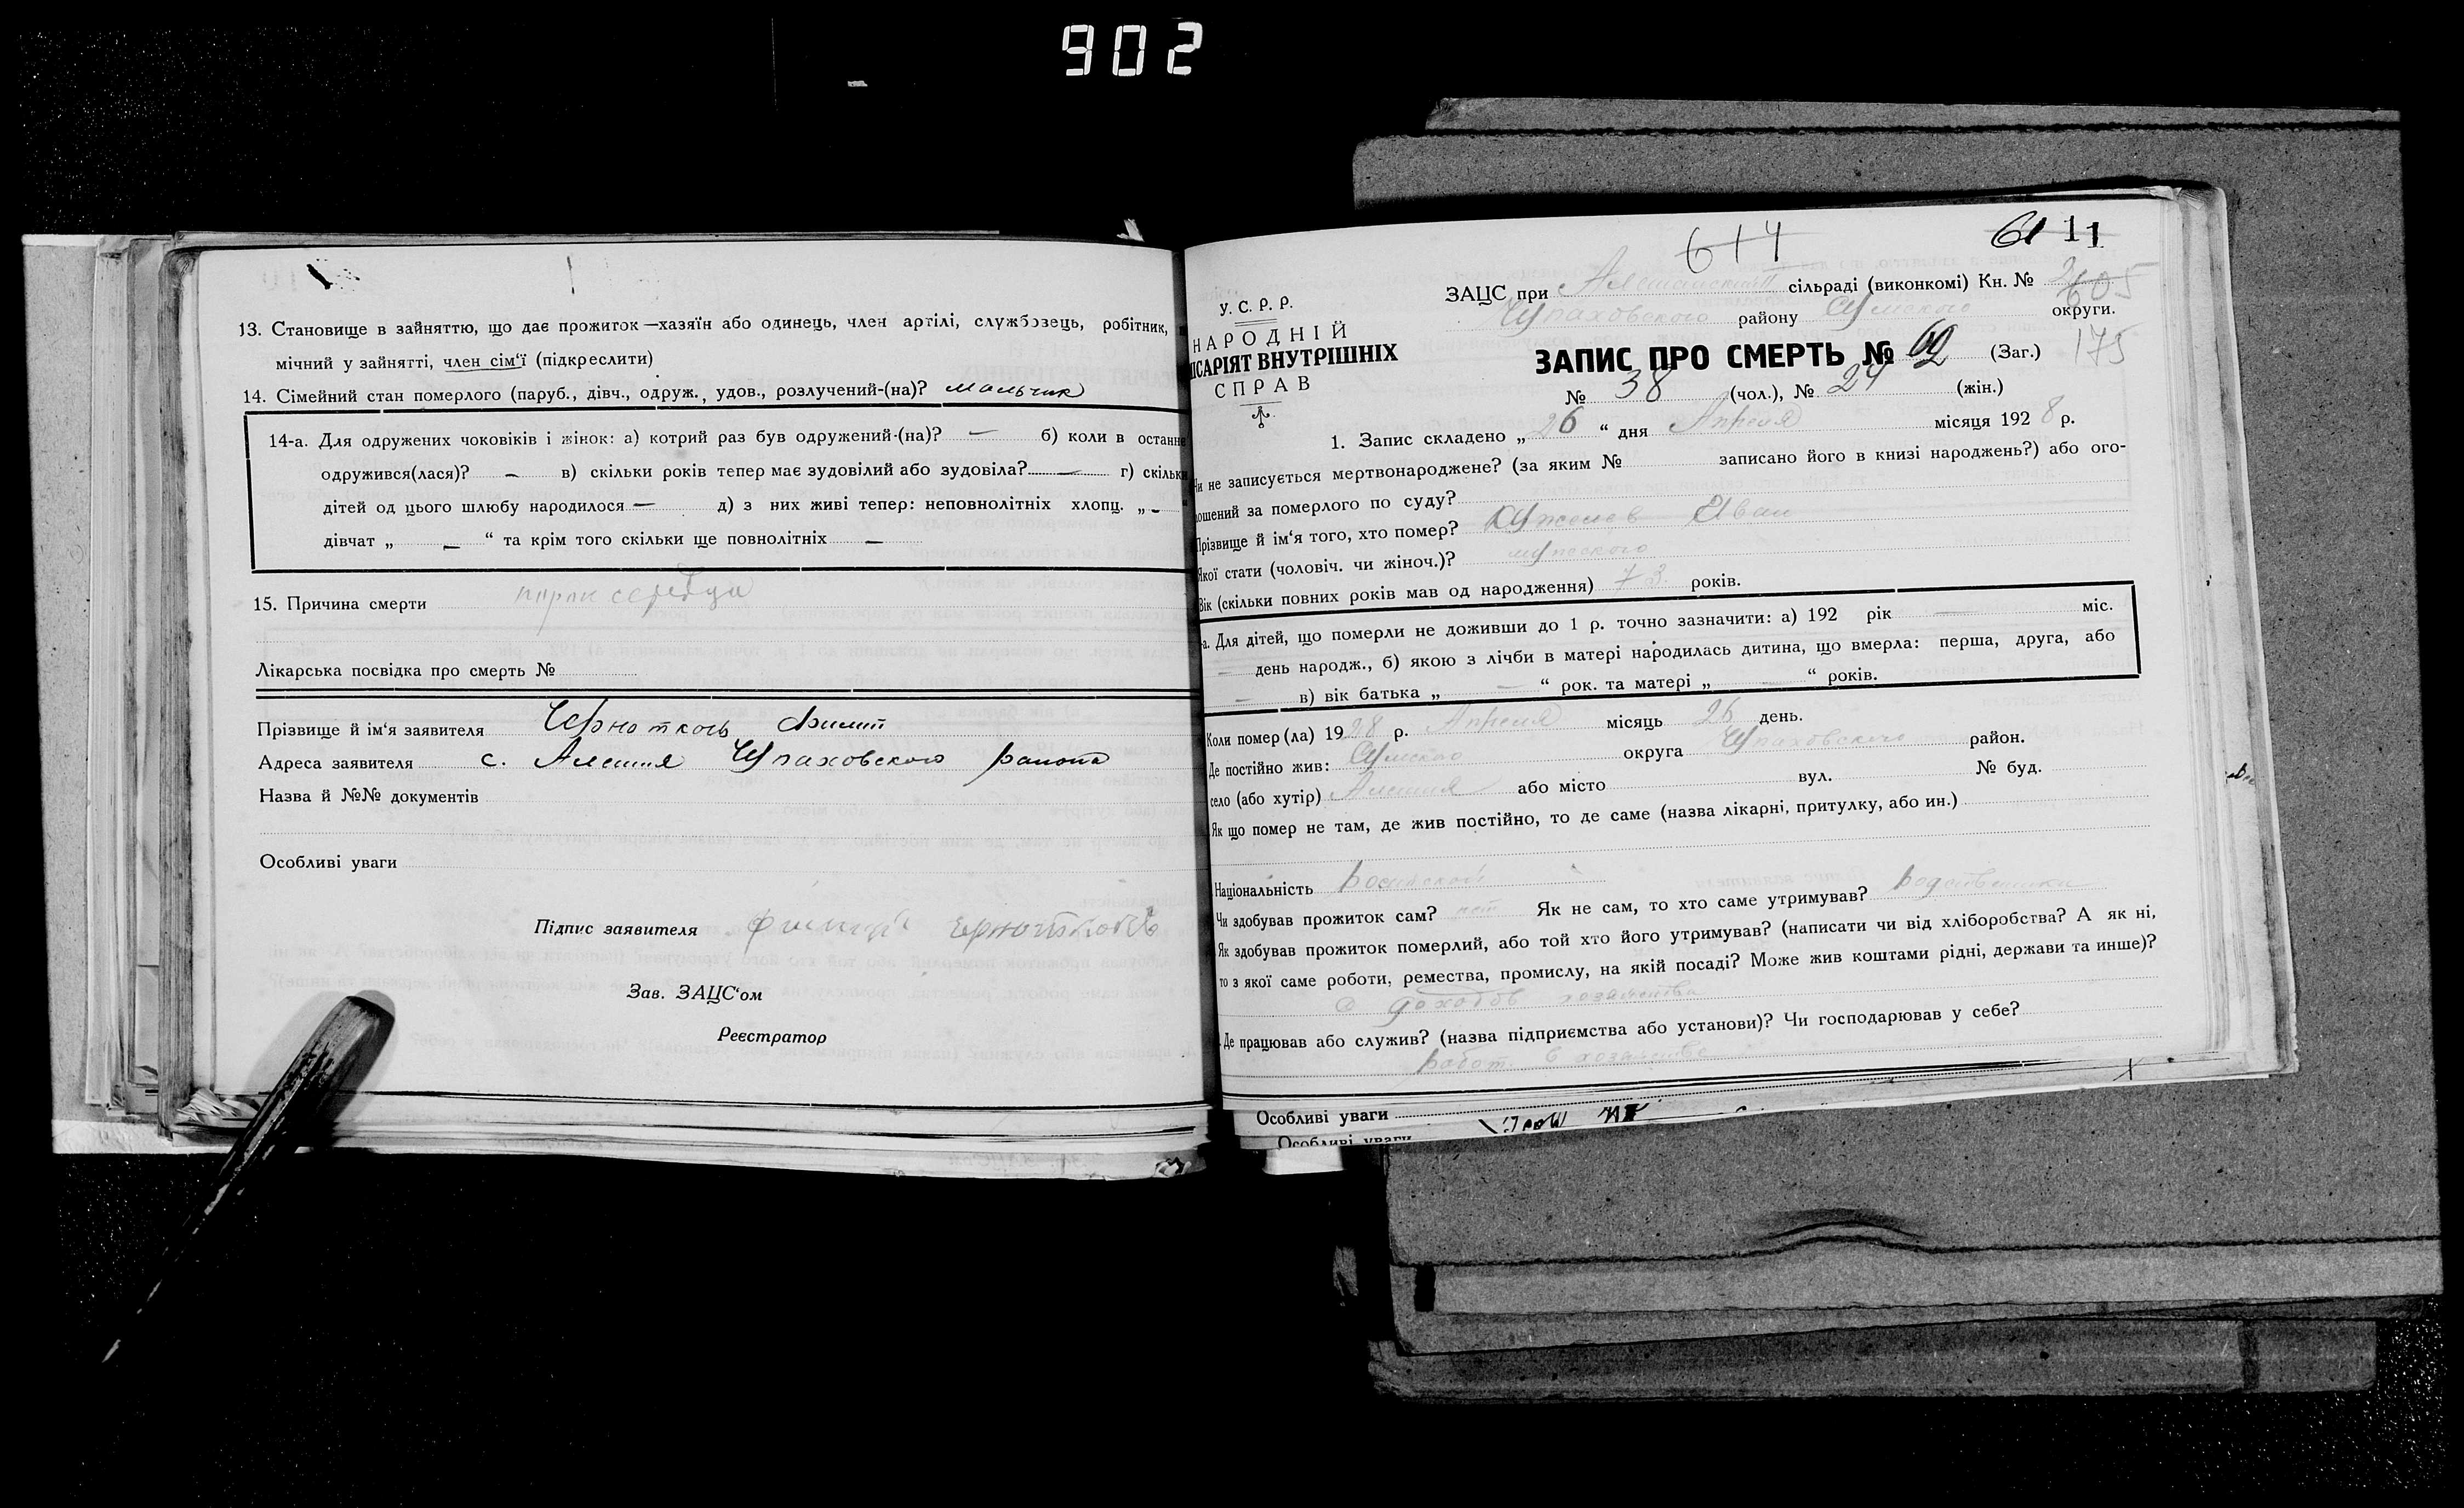 902
13. Становище в зайняттю, що дає прожиток—хазяїн або одинець, член артілі, службовець, робітник,
мічний у зайнятті, член сім‘ї (підкреслити)
14. Сімейний стан померлого (паруб., дівч., одруж., удов., розлучений-(на)? мальчик
14-а. Для одружених чоковіків і жінок: а) котрий раз був одружений-(на)? — б) коли в останн
одружився(лася)? — в) скільки років тепер має зудовілий або зудовіла? — г) скільк
дітей од цього шлюбу народилося — д) з них живі тепер: неповнолітніх хлопц. „ —
дівчат „ — “ та крім того скільки ще повнолітніх —
15. Причина смерти порок сердца
Лікарська посвідка про смерть №
Прізвище й ім‘я заявителя Филип
Адреса заявителя с. Алешня Чупаховского района
Назва й №№ документів
Особливі уваги
Підпис заявителя
Зав. ЗАЦС‘ом
Реєстратор
614
61 11
У. С. Р. Р.
НАРОДНІЙ
ІСАРІЯТ ВНУТРІШНІХ
СПРАВ
ЗАЦС при сільраді (виконкомі) Кн. № 2
605
Чупаховского району Сумской округи.
ЗАПИС ПРО СМЕРТЬ № 62 (Заг.) 175
№ 38 (чол.), № 24 (жін.)
1. Запис складено „ 26 “ дня Апреля місяця 1928 р.
Чи не записується мертвонароджене? (за яким № записано його в книзі народжень?) або ого-
лошений за померлого по суду?
Прізвище й ім‘я того, хто помер? Иван
Якої стати (чоловіч. чи жіноч.)? мужского
Вік (скільки повних років мав од народження) 73 років.
а. Для дітей, що померли не доживши до 1 р. точно зазначити: а) 192 рік — міс.
— день народж., б) якою з лічби в матері народилась дитина, що вмерла: перша, друга, або
— в) вік батька „ — “ рок. та матері „ — “ років.
Коли помер (ла) 1928 р. Апреля місяць 26 день.
Де постійно жив: Сумского округа Чупаховского район.
село (або хутір) Алешня або місто вул. № буд.
Як що помер не там, де жив постійно, то де саме (назва лікарні, притулку, або ин.)
Національність
Чи здобував прожиток сам? нет Як не сам, то хто саме утримував? родственники
Як здобував прожиток померлий, або той хто його утримував? (написати чи від хліборобства? А як ні,
то з якої саме роботи, ремества, промислу, на якій посаді? Може жив коштами рідні, держави та инше)?
С доходов хозяйства
Де працював або служив? (назва підприємства або установи)? Чи господарював у себе?
работ. в хозяйстве
Особливі уваги
Особливі уваги